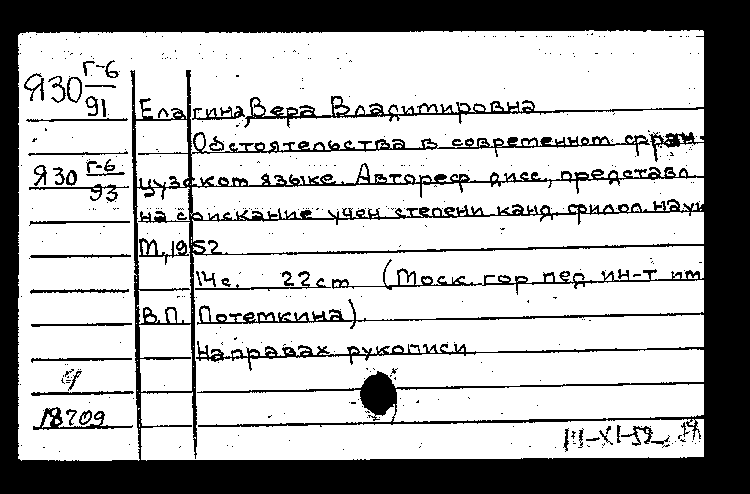 Я30 Г-6/91
Елагина, Вера Владимировна
Обстоятельства в современном фран-
Я30 Г-6/93
цузском языке. Автореф. дисс., представл.
на соискание учен степени канд. филол. наук
М., 1952.
14с. 22см. (Моск. гор. пед. ин-т им
В.П. Потемкина).
На правах рукописи
18709
III-XI-52